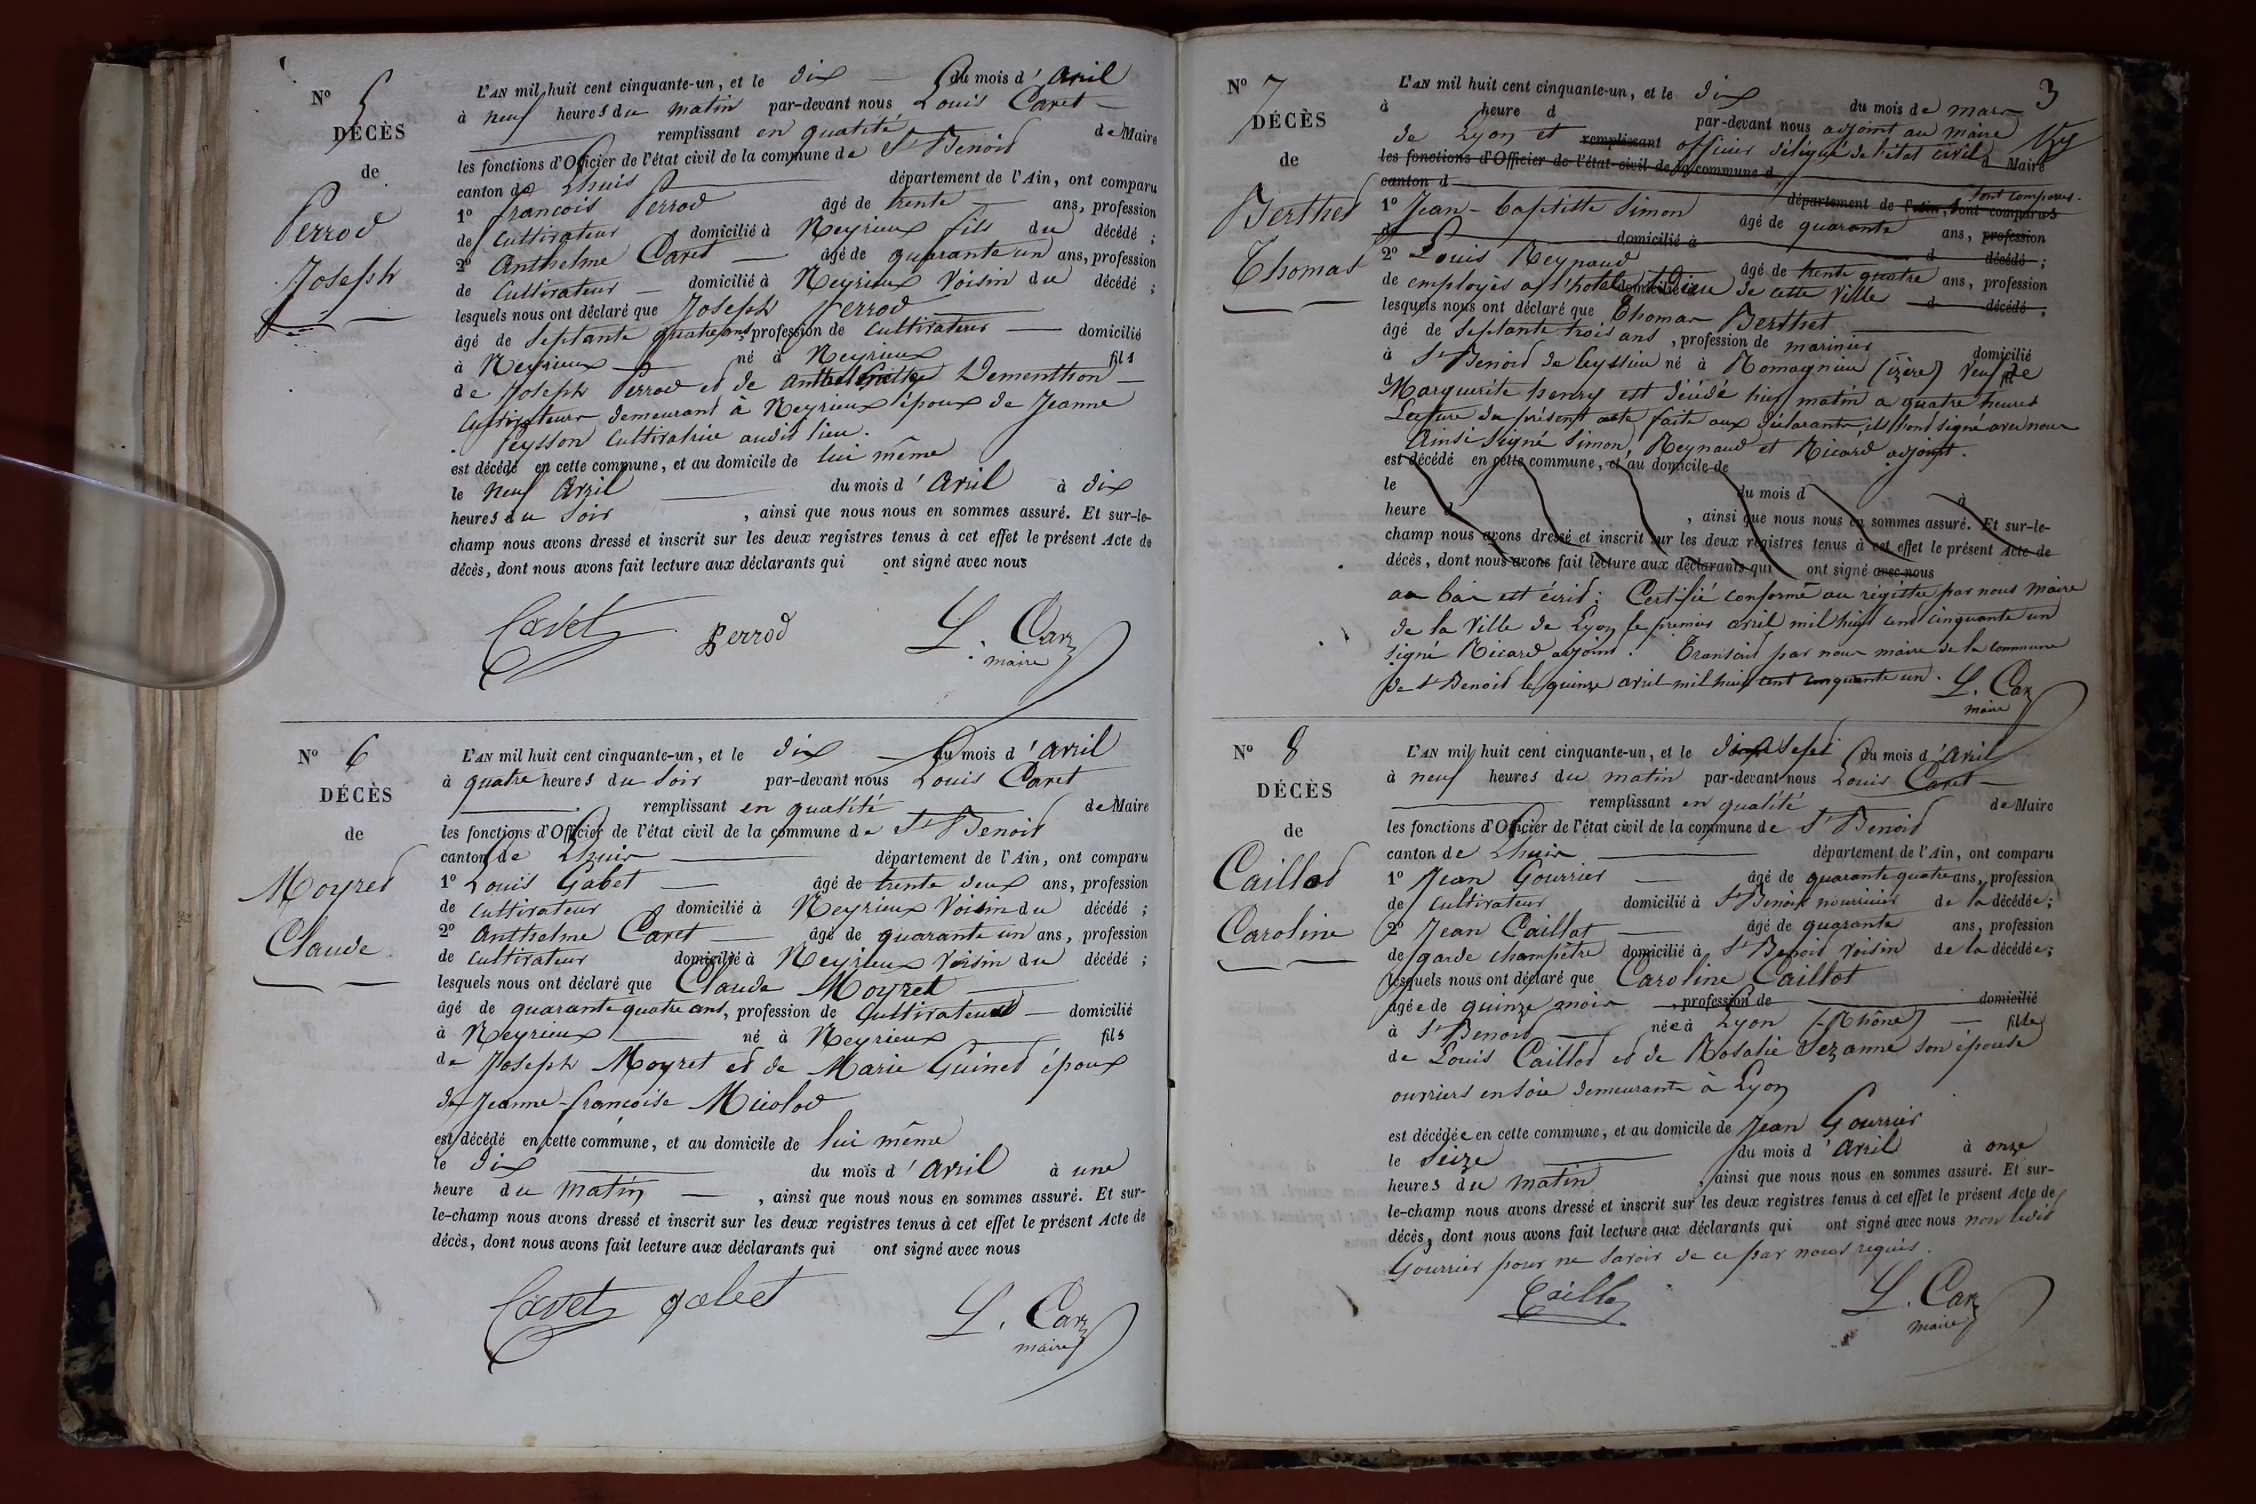 N° 5
DÉCÈS
de
Perrod
Joseph
L'AN mil huit cent cinquante-un, et le dix du mois d'avril
à neuf heures du matin par-devant nous Louis Caret
remplissant en qualité de Maire
les fonctions d'Officier de l'état civil de la commune de St Benoit
canton de Lhuis département de l'Ain, ont comparu
1° françois Perrod âgé de trente ans, profession
de cultivateur domicilié à Neyrieux fils du décédé ;
2° Anthelme Caret âgé de quarante un ans, profession
de Cultivateur domicilié à Neyrieux Voisin du décédé ;
lesquels nous ont déclaré que Joseph Perrod
âgé de septante quatre ans, profession de cultivateur domicilié
à Neyrieux né à Neyrieux fils
de Joseph Perrod et de Dementhon
Cultivateurs demeurant à Neyrieux époux de Jeanne
Peysson Cultivatrice audit lieu.
est décédé en cette commune, et au domicile de lui même
le neuf Avril du mois d'avril à dix
heures du soir, ainsi que nous nous en sommes assuré. Et sur-le-
champ nous avons dressé et inscrit sur les deux registres tenus à cet effet le présent Acte de
décès, dont nous avons fait lecture aux déclarants qui ont signé avec nous
Caret Perrod L. Car
maire
N° 6
DÉCÈS
de
Moyret
Claude
L'AN mil huit cent cinquante-un, et le dix du mois d'avril
à quatre heures du soir par-devant nous Louis Caret
remplissant en qualité de Maire
les fonctions d'Officier de l'état civil de la commune de St Benoit
canton de Lhuis département de l'Ain, ont comparu
1° Louis Gabet âgé de trente deux ans, profession
de cultivateur domicilié à Neyrieux Voisin du décédé ;
2° Anthelme Caret âgé de quarante un ans, profession
de cultivateur domicilié à Neyrieux Voisin du décédé ;
lesquels nous ont déclaré que Claude Moyret
âgé de quarante quatre ans, profession de Cultivateur domicilié
à Neyrieux né à Neyrieux fils
de Joseph Moyret et de Marie Guinet époux
de Jeanne-françoise Micolod
est décédé en cette commune, et au domicile de lui même
le dix du mois d'avril à une
heure du matin, ainsi que nous nous en sommes assuré. Et sur-
le-champ nous avons dressé et inscrit sur les deux registres tenus à cet effet le présent Acte de
décès, dont nous avons fait lecture aux déclarants qui ont signé avec nous
Caret gabet L. Car
maire
3
N° 7
DÉCÈS
de
Berthet
Thomas
L'AN mil huit cent cinquante-un, et le dix du mois de mars
à heure d par-devant nous adjoint au maire
de Lyon et remplissant officier délégué de l'état civil Maire
les fonctions d'Officier de l'état-civil de la commune d
canton d département de l'Ain, ont comparu sont comparus
1° Jean-baptiste Simon âgé de quarante ans, profession
domicilié à d décédé ;
2° Louis Reynaud âgé de trente quatre ans, profession
de employés à l'hotel Dieu domicilié à de cette ville d décédé ;
lesquels nous ont déclaré que Thomas Berthet
âgé de septante trois ans, profession de marinier domicilié
à St Benoit de Ceyssieu né à Romagnieu (izère) veuf de
Marguerite henry est décédé hier matin a quatre heures
Lecture du présent acte faite aux déclarants ils l'ont signé avec nous
Ainsi signé Simon, Reynaud et Ricard adjoint.
est décédé en cette commune, et au domicile de
le du mois d à
heure d , ainsi que nous nous en sommes assuré. Et sur-le-
champ nous avons dressé et inscrit sur les deux registres tenus à cet effet le présent Acte de
décès, dont nous avons fait lecture aux déclarants qui ont signé avec nous
au bas est écrit : Certifié conforme au régistre par nous maire
de la Ville de Lyon le premier avril mil huit cent cinquante un
signé Ricard adjoint. Transcrit par nous maire de la commune
de St Benoit le quinze avril mil huit cent cinquante un. L. Car
maire
N° 8
DÉCÈS
de
Caillod
Caroline
L'AN mil huit cent cinquante-un, et le dix sept du mois d'avril
à neuf heures du matin par-devant nous Louis Caret
remplissant en qualité de Maire
les fonctions d'Officier de l'état civil de la commune de St Benoit
canton de Lhuis département de l'Ain, ont comparu
1° Jean Gourrier âgé de quarante quatre ans, profession
de Cultivateur domicilié à St Benoit nourricier de la décédée ;
2° Jean Caillot âgé de quarante ans, profession
de garde champêtre domicilié à St Benoit voisin de la décédée ;
lesquels nous ont déclaré que Caroline Caillot
âgée de quinze mois, profession de domicilié
à St Benoit née à Lyon (Rhône) fille
de Louis Caillod et de Rosalie Sezanne son épouse
ouvriers en soie demeurants à Lyon
est décédée en cette commune, et au domicile de Jean Gourrier
le seize du mois d'avril à onze
heures du matin, ainsi que nous nous en sommes assuré. Et sur-
le-champ nous avons dressé et inscrit sur les deux registres tenus à cet effet le présent Acte de
décès, dont nous avons fait lecture aux déclarants qui ont signé avec nous non ledit
Gourrier pour ne savoir de ce par nous requis.
Caillo L. Car
maire